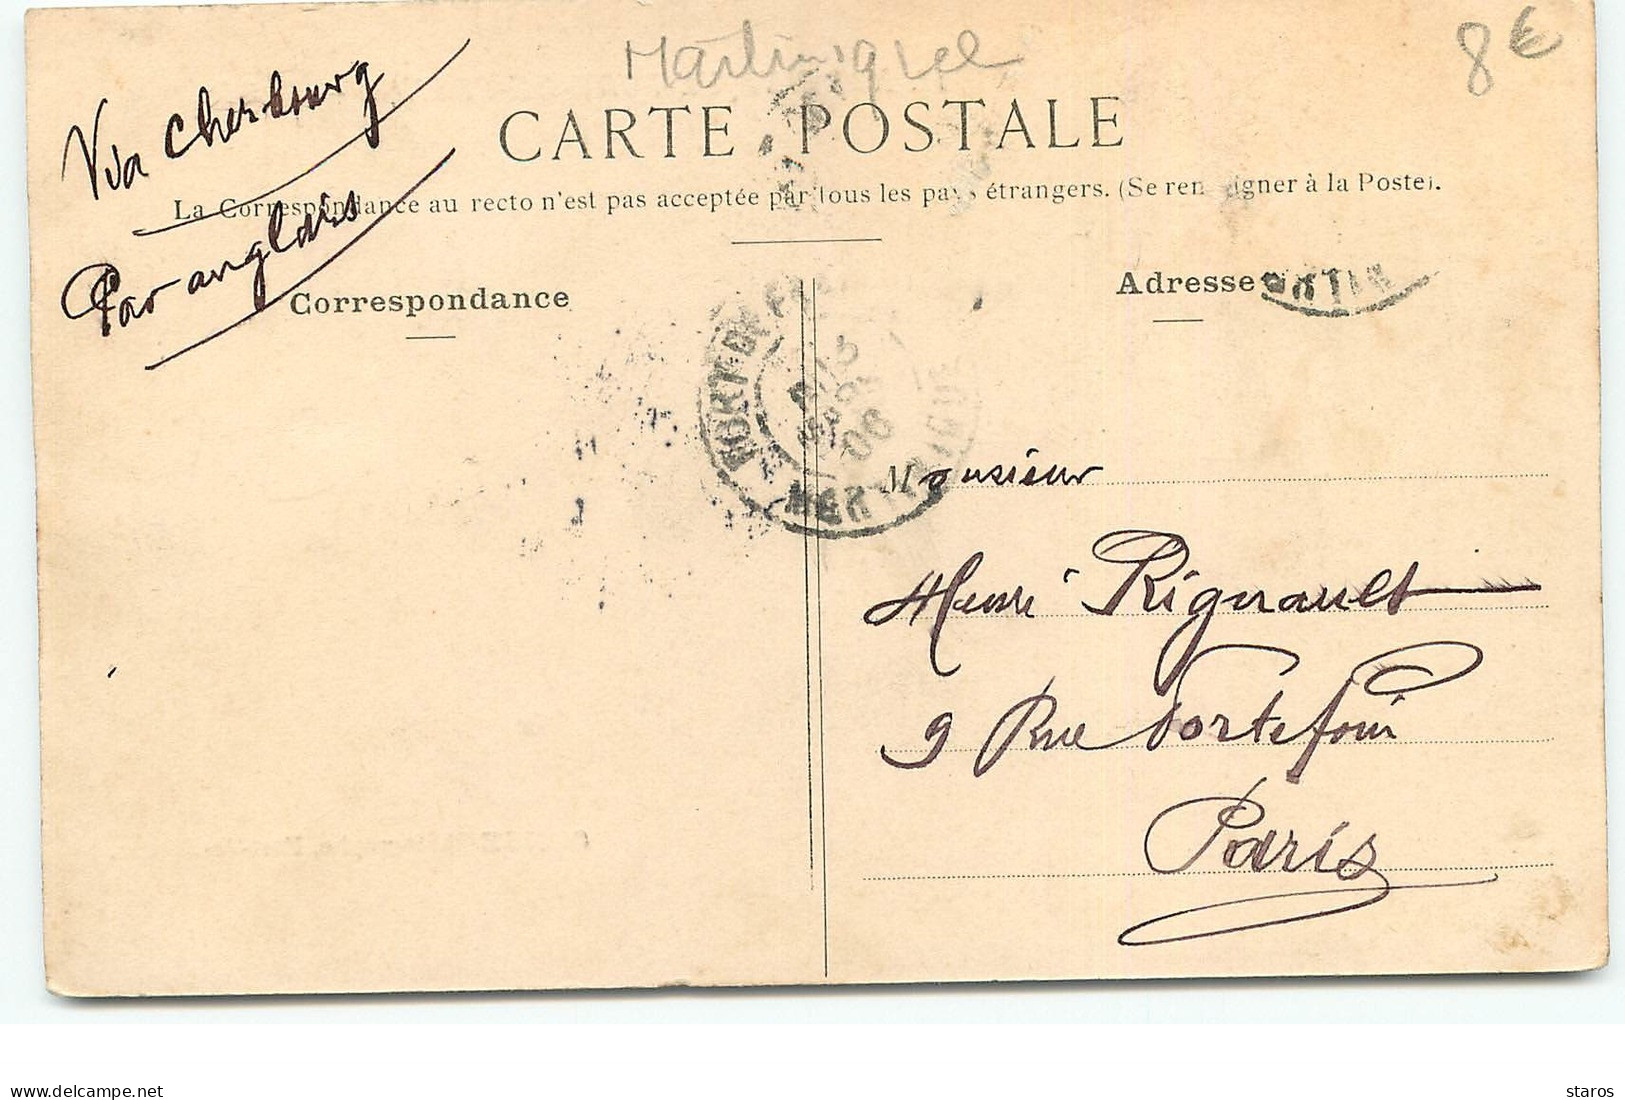 Martinique
8€
Via Cherbourg
Par anglais
CARTE POSTALE
La Correspondance au recto n'est pas acceptée par tous les pays étrangers. (Se renseigner à la Poste).
Correspondance
Adresse
FORT DE FR
06
MARTINIQUE
Monsieur
Henri Rignault
9 Rue Portefoin
Paris
delcampe.net
staros